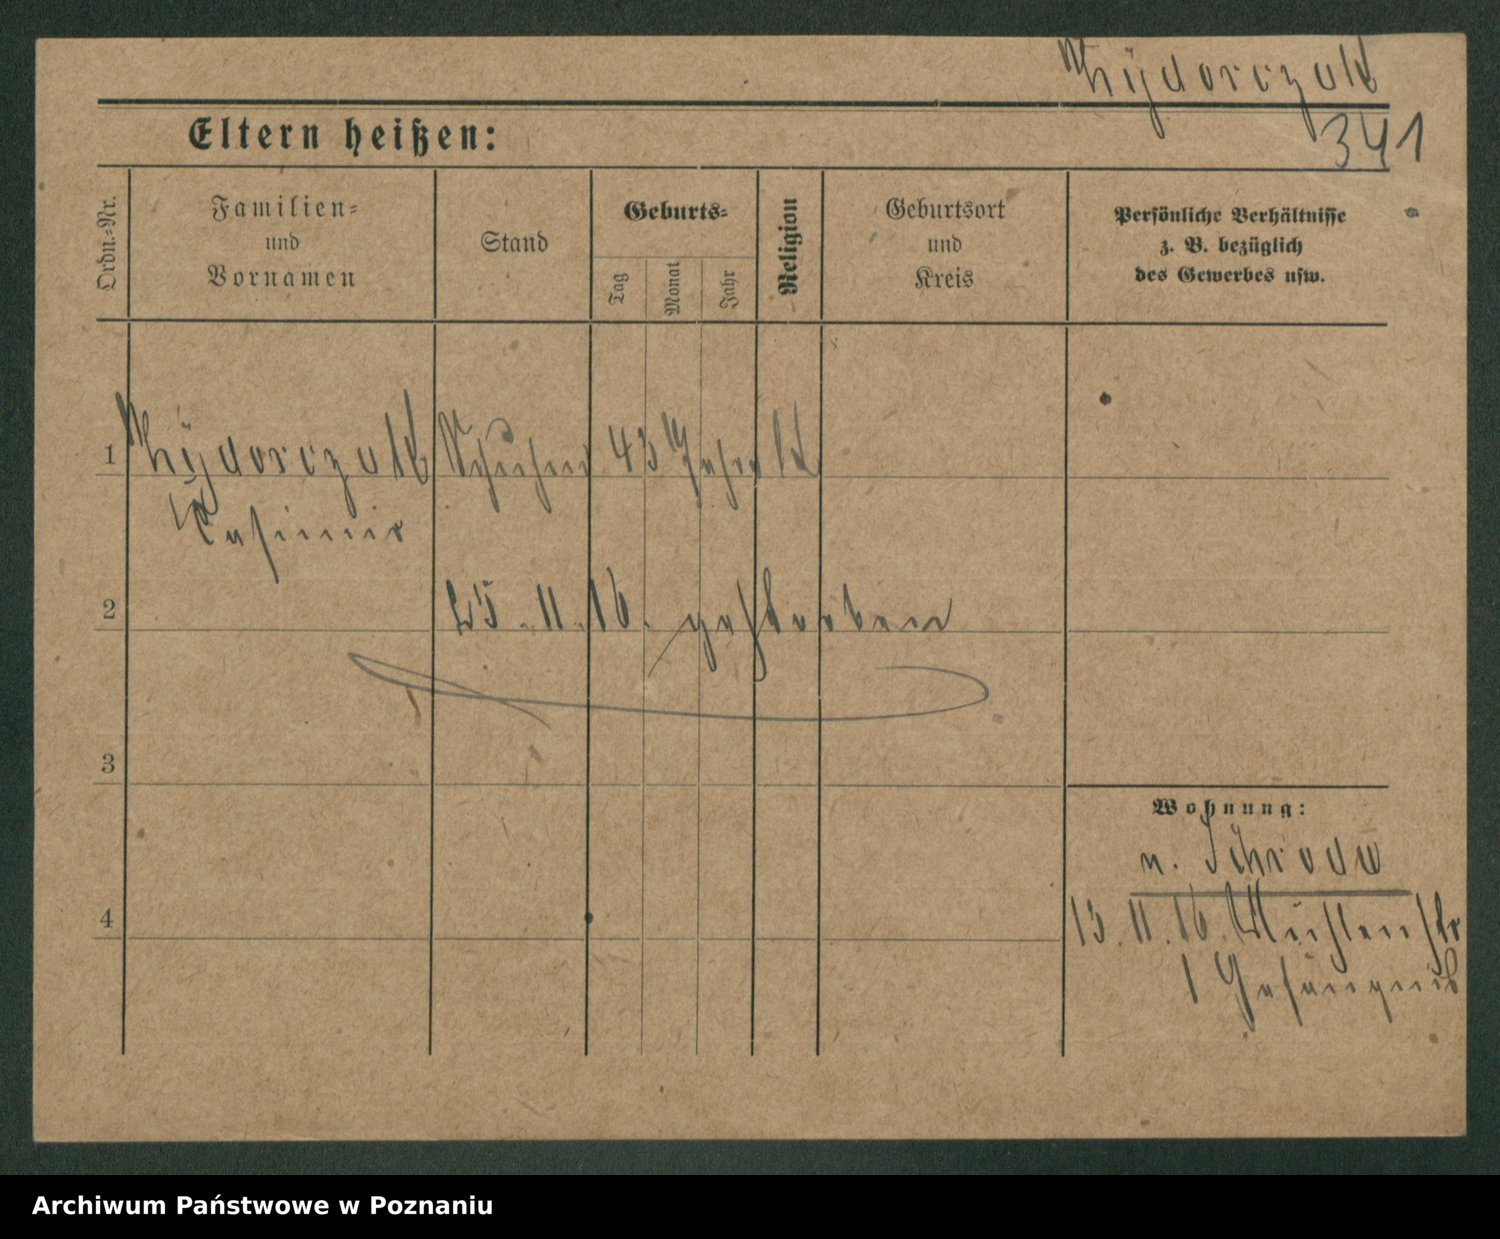 341
Eltern heißen:
Ordn.-Nr.
Familien-
und
Vornamen
Stand
Geburts-
Tag
Monat
Jahr
Religion
Geburtsort
und
Kreis
Persönliche Verhältnisse
z. B. bezüglich
des Gewerbes usw.
1
43 Jahre
Casimir
2
25. 11. 16. gestorben
3
Wohnung:
n. Schroda
4
13. 11. 16.
1 Gefängnis
Archiwum Państwowe w Poznaniu